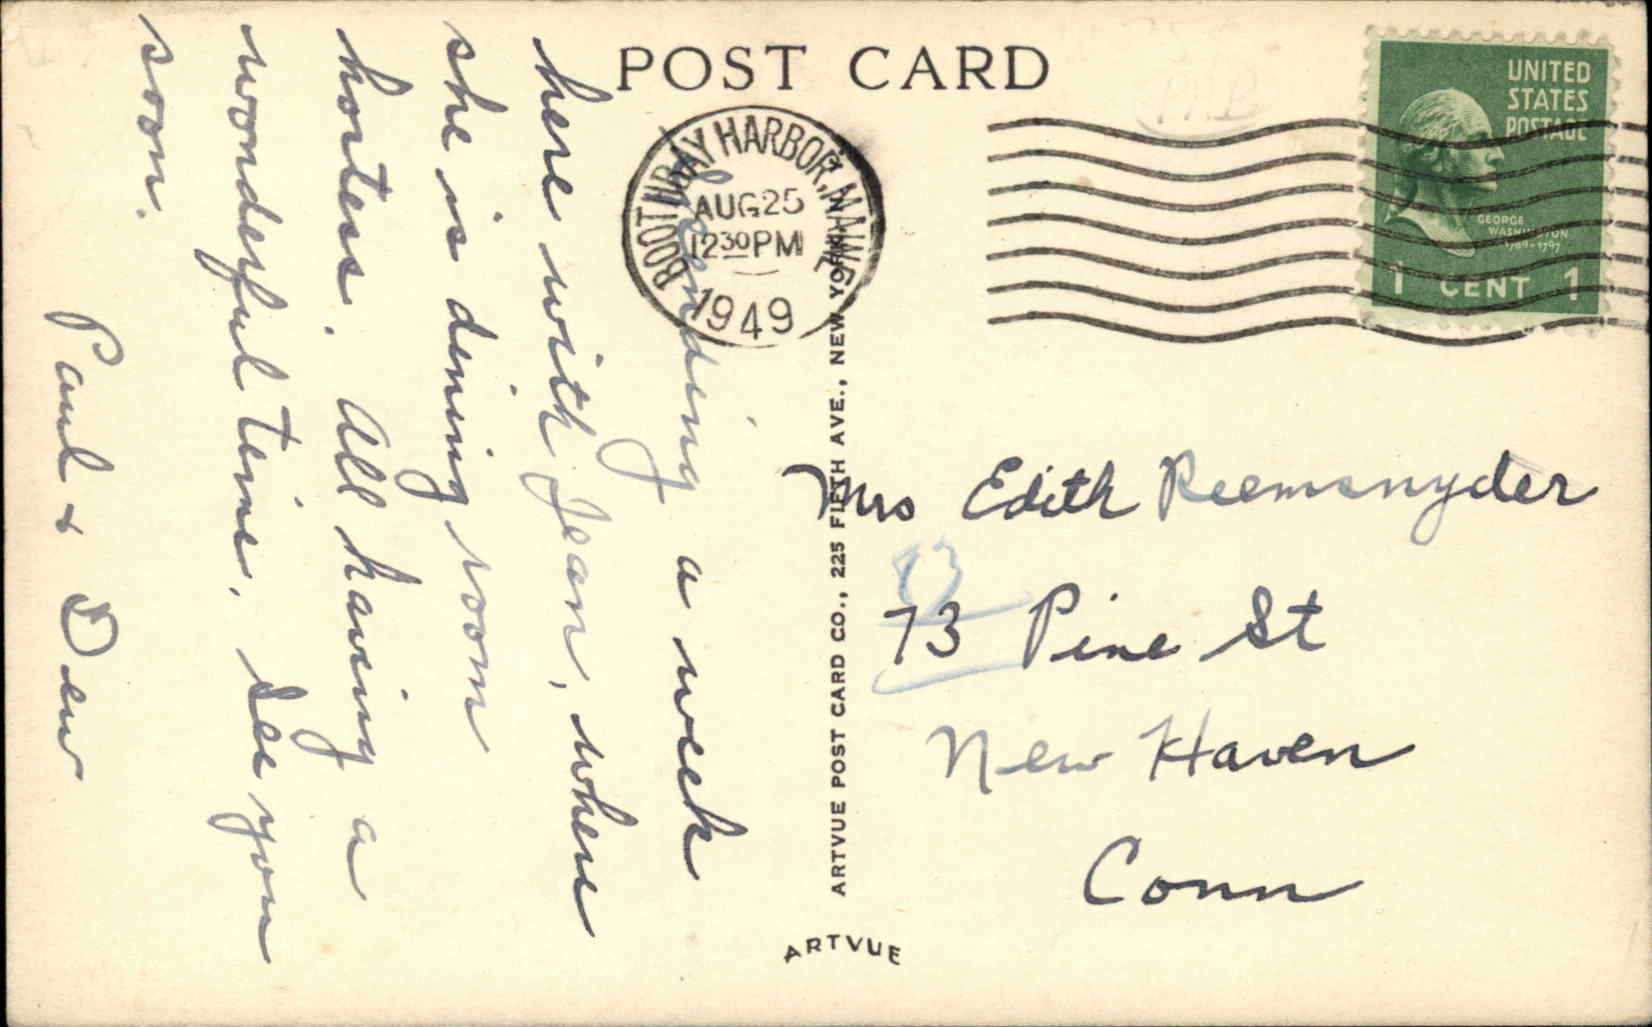 POST CARD
BOOTHBAY HARBOR, MAINE
AUG 25
12 30 PM
1949
UNITED
STATES
POSTAGE
GEORGE
WASHINGTON
1789-1797
1 CENT 1
Spending a week
here with Jean, where
she is dining room
hostess. All having a
wonderful time. See you
soon.
Paul & Dew
Mrs Edith Reemsnyder
73 Pine St
New Haven
Conn
ARTVUE POST CARD CO., 225 FIFTH AVE., NEW YORK
ARTVUE